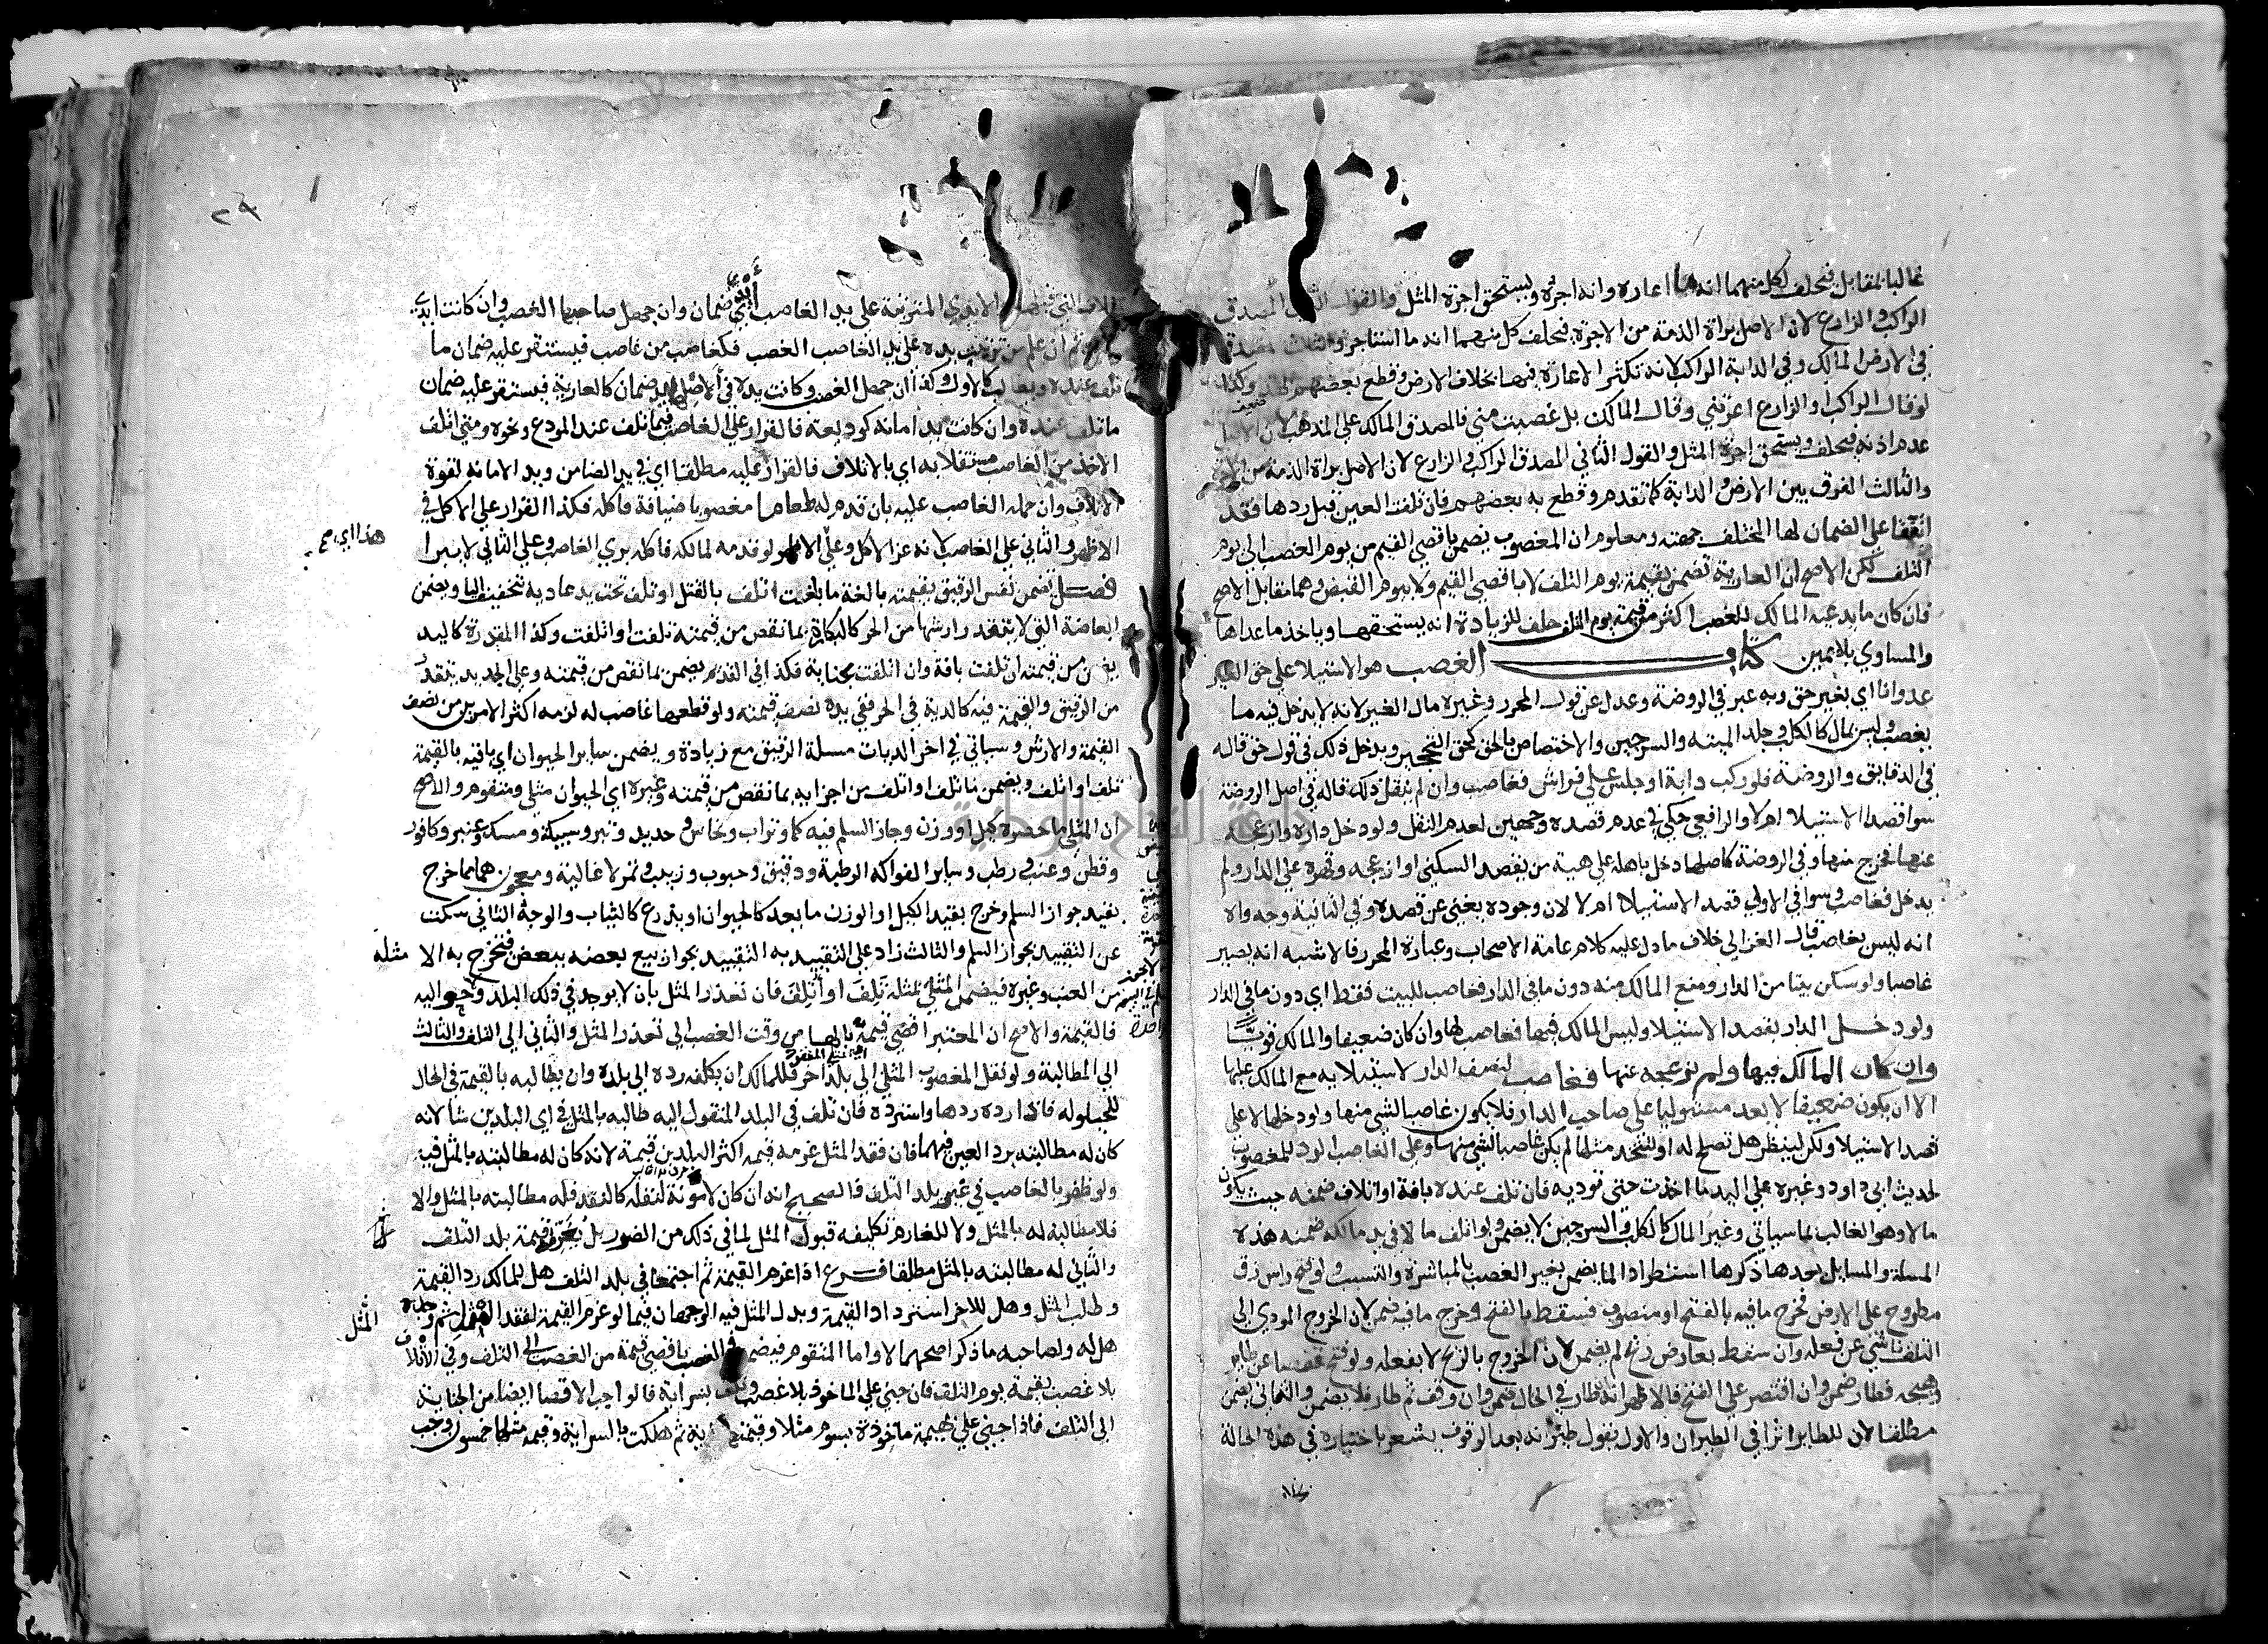 غالبا بمقابل فيحلف لكل منهما انه ما اعاره وانه اجره ويستحق اجرة المثل والقول الثاني المصدق
الراكب والزارع لان الاصل براة الذمة من الاجرة فيحلف كل منهما انه ما استاجر والثالث المصدق
في الارض المالك وفي الدابة الراكب لانه تكثر الاعارة فيها بخلاف الارض وقطع بعضهم وكذا
لو قال الراكب او الزارع اعرتني وقال المالك بل غصبت مني فالمصدق المالك على المذهب لان الاصل
عدم اذنه فيحلف ويستحق اجرة المثل والقول الثاني المصدق الراكب والزارع لان الاصل براة الذمة من
والثالث الفرق بين الارض والدابة كما تقدم وقطع به بعضهم فان تلفت العين قبل ردها فقد
اتفقا على الضمان لها المختلف جهته ومعلوم ان المغصوب يضمن باقصى القيم من يوم الغصب الى يوم
التلف لكن الاصح ان العارية تضمن بقيمة يوم التلف لا باقصى القيم ولا بيوم القبض وهما مقابل الاصح
فان كان ما يدعيه المالك للغصب اكثر من قيمة يوم التلف حلف للزيادة انه يستحقها وياخذ ما عداها
والمساوي بلا يمين كتاب الغصب هو الاستيلا على حق الغير
عدوانا اي بغير حق وبه عبر في الروضة وعدل عن قول المحرر وغيره مال الغير لانه لا يدخل فيه ما
يغصب وليس بمال كالكلب وجلد الميتة والسرجين والاختصاص بالحق كحق التحجير ويدخل ذلك في قول حق قاله
في الدقايق والروضة فلو ركب دابة او جلس على فراش فغاصب وان لم ينقل ذلك قاله في اصل الروضة
سوا قصد الاستيلا ام لا والرافعي حكى في عدم قصده وجهين لعدم النقل ولو دخل داره وازعجه
عنها فخرج منها وفي الروضة كاصلها دخل باهله على هيية من يقصد السكنى او ازعجه وقهره على الدار ولم
يدخل فغاصب وسوا في الاولى قصد الاستيلا ام لا لان وجوده يغني عن قصده وفي الثانية وجه واه
انه ليس بغاصب قال الغزالي خلاف ما دل عليه كلام عامة الاصحاب وعبارة المحرر فالاشبه انه يصير
غاصبا ولو سكن بيتا من الدار ومنع المالك منه دون ما في الدار فغاصب للبيت فقط اي دون ما في الدار
ولو دخل الدار بقصد الاستيلا وليس المالك فيها فغاصب لها وان كان ضعيفا والمالك قويا
وان كان المالك فيها ولم يزعجه عنها فغاصب لنصف الدار لاستيلايه مع المالك عليها
الا ان يكون ضعيفا لا يعد مستوليا على صاحب الدار فلا يكون غاصبا لشي منها ولو دخلها لا على
قصد الاستيلا ولكن لينظر هل تصلح له او ليتخذ مثلها لم يكن غاصبا لشي منها وعلى الغاصب الرد للمغصوب
لحديث ابي داود وغيره على اليد ما اخذت حتى توديه فان تلف عنده بافة او اتلاف ضمنه حيث يكون
مالا وهو الغالب بما سياتي وغير المال كالكلب والسرجين لا يضمن ولو اتلف مالا في يد مالكه ضمنه هذه
المسلة والمسايل بعدها ذكرها استطرادا لما يضمن بغير الغصب بالمباشرة والتسبب ولو فتح راس زق
مطروح على الارض فخرج ما فيه بالفتح او منصوب فسقط بالفتح وخرج ما فيه ضمن لان الخروج المودي الى
التلف ناشي عن فعله وان سقط بعارض ريح لم يضمن لان الخروج بالريح لا بفعله ولو فتح قفصا عن طاير
وهيجه فطار ضمن وان اقتصر على الفتح فالاظهر انه ان طار في الحال ضمن وان وقف ثم طار فلا يضمن والثاني يضمن
مطلقا لان للطاير اثرا في الطيران والاول يقول طيرانه بعد الوقوف يشعر باختياره في هذه الحالة
٢٩
الايدي المترتبة على يد الغاصب ايدي ضمان وان جهل صاحبها الغصب وان كانت ايدي
ثم ان علم من ترتبت يده على يد الغاصب الغصب فكغاصب من غاصب فيستقر عليه ضمان ما
تلف عنده ويطالب كالاول وكذا ان جهل الغصب وكانت يده في الاصل يد ضمان كالعارية فيستقر عليه ضمان
ما تلف عنده وان كانت يد امانة كوديعة فالقرار على الغاصب فيما تلف عند المودع ونحوه ومتى اتلف
الاخذ من الغاصب مستقلا به اي بالاتلاف فالقرار عليه مطلقا اي في يد الضامن ويد الامانة لقوة
الاتلاف وان حمله الغاصب عليه بان قدم له طعاما مغصوبا ضيافة فاكله فكذا القرار على الاكل في
هذا اي
الاظهر والثاني على الغاصب لانه غر الاكل وعلى الاظهر لو قدمه لمالكه فاكله بري الغاصب وعلى الثاني لا يبرا
فصل تضمن نفس الرقيق بقيمته بالغة ما بلغت اتلف بالقتل او تلف تحت يد عادية بتخفيف اليا ويضمن
ابعاضه التي لا يتقدر ارشها من الحر كالبكارة بما نقص من قيمته تلفت او اتلفت وكذا المقدرة كاليد
من قيمته ان تلفت بافة وان اتلفت بجناية فكذا في القديم يضمن بما نقص من قيمته وعلى الجديد يتقدر
من الرقيق والقيمة فيه كالدية في الحر ففي يده نصف قيمته ولو قطعها غاصب له لزمه اكثر الامرين من نصف
القيمة والارش وسياتي في اخر الديات مسلة الرقيق مع زيادة ويضمن ساير الحيوان اي باقيه بالقيمة
تلف او اتلف ويضمن ما تلف او اتلف من اجزايه بما نقص من قيمته وغيره اي الحيوان مثلي ومتقوم والاصح
ان المثلي ما حصره كيل او وزن وجاز السلم فيه كما وتراب ونحاس وحديد وتبر وسبيكة ومسك وعنبر وكافور
وقطن وعنب ورطب وساير الفواكه الرطبة ودقيق وحبوب وزبيب وتمر لا غالية ومعجون هما مما خرج
بقيد جواز السلم وخرج بقيد الكيل او الوزن ما يعد كالحيوان او يذرع كالثياب والوجه الثاني سكت
عن التقييد بجواز السلم والثالث زاد على التقييد به التقييد بجواز بيع بعضه ببعض فتخرج به الا مثله
من العنب وغيره فيضمن المثلي بمثله تلف او اتلف فان تعذر المثل بان لا يوجد في ذلك البلد وحواليه
فالقيمة والاصح ان المعتبر اقصى قيمة بالها من وقت الغصب الى تعذر المثل والثاني الى التلف والثالث
الى المطالبة ولو نقل المغصوب المثلي الى بلد اخر فللمالك ان يكلفه رده الى بلده وان يطالبه بالقيمة في الحال
للحيلولة فاذا رده ردها واسترده فان تلف في البلد المنقول اليه طالبه بالمثل في اي البلدين شا لانه
كان له مطالبته برد العين فيهما فان فقد المثل غرمه قيمة اكثر البلدين قيمة لانه كان له مطالبته بالمثل فيه
ولو ظفر بالغاصب في غير بلد التلف فالصحيح انه ان كان لا مونة لنقله كالنقد فله مطالبته بالمثل والا
فلا مطالبة له بالمثل ولا للغارم تكليفه قبول المثل لما في ذلك من الضرر بل يغرمه قيمة بلد التلف
والثاني له مطالبته بالمثل مطلقا فرع اذا غرم القيمة ثم اجتمعا في بلد التلف هل للمالك رد القيمة
وطلب المثل وهل للاخر استرداد القيمة وبدل المثل فيه الوجهان فيما لو غرم القيمة لفقد المثل ثم وجد
المثل
هل له ولصاحبه ما ذكر اصحهما لا واما المتقوم فيضمن في الغصب باقصى قيمة من الغصب الى التلف وفي الاتلاف
بلا غصب بقيمة يوم التلف فان جنى على الماخوذ بلا غصب وتلف بسراية فالواجب الاقصا ايضا من الجناية
الى التلف فاذا جنى على بهيمة ماخوذة بسوم مثلا وقيمتها ماية ثم هلكت بالسراية وقيمة مثلها خمسون وجب